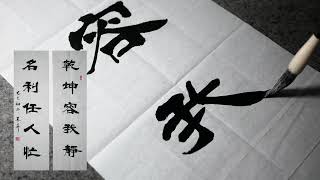 乾坤容我靜
名利任人忙
容我